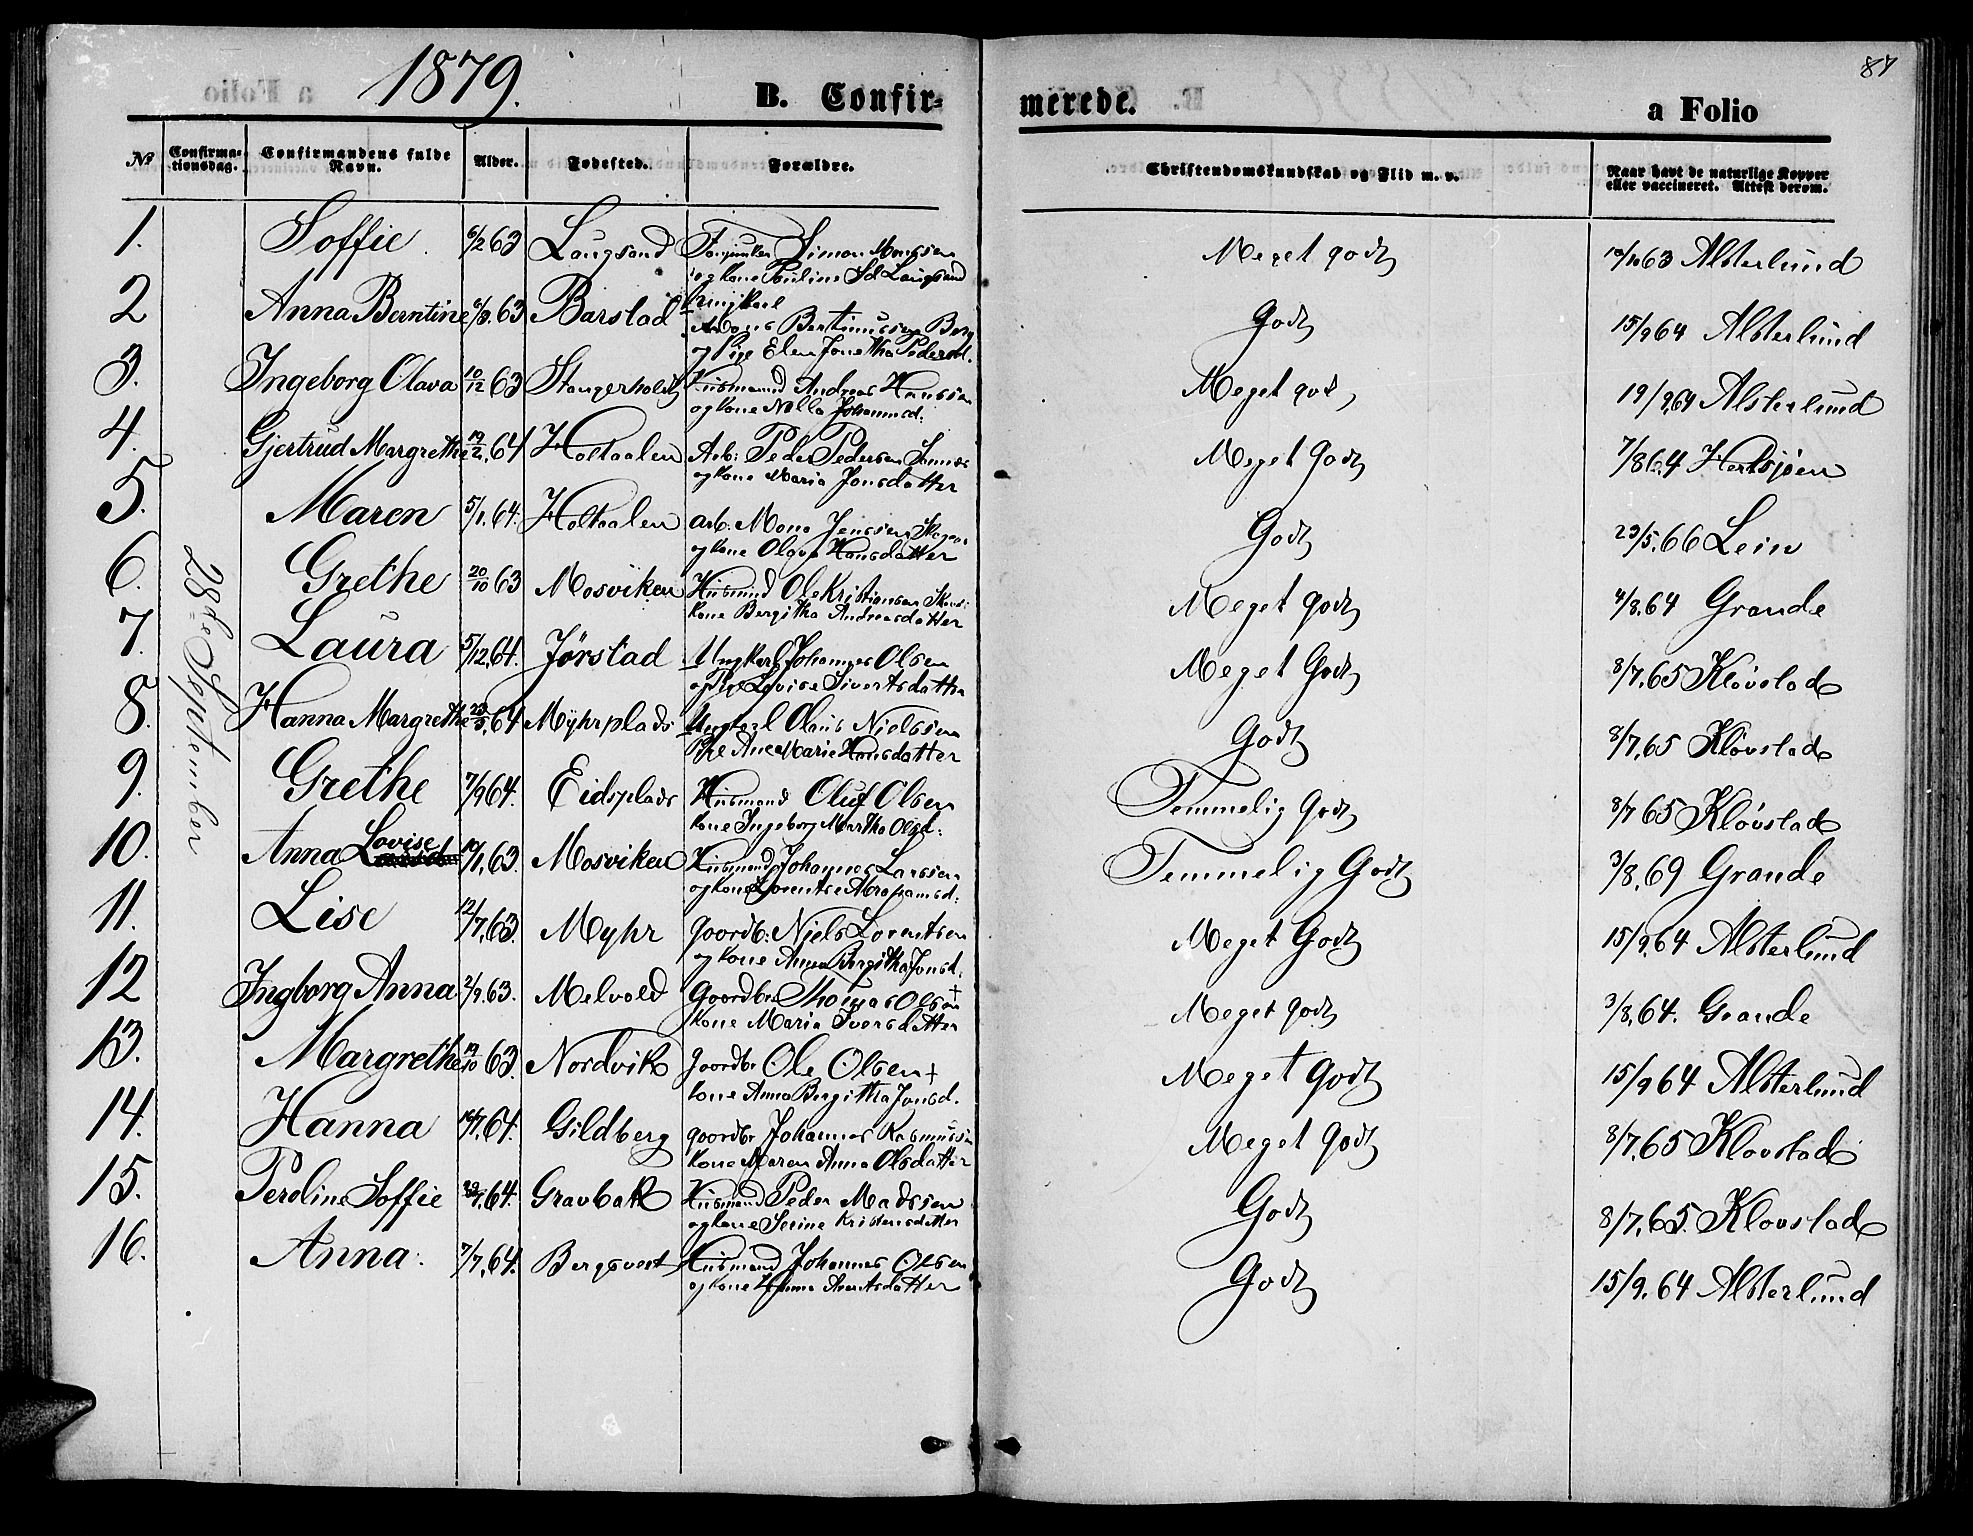 1879.
B. Confir-
merede.
a Folio
87
No
Confirmationsdag.
Confirmandens fulde Navn.
Alder.
Fødested.
Forældre.
Christendomskundskab og Flid m. v.
Naar havt de naturlige Kopper eller vaccineret. Attest derom.
28de September
1. Soffie 6/2 63 Langsand Simon
og kone Pauline Meget godt 63 Alsterlund
2 Anna Berntine 63 Barstad Ungkarl
Berg
og Pige Elen Jonetha Godt 15/9 64 Alsterlund
3. Ingeborg Olava 10/12 63 Husmand Andreas Hanssen
og kone Meget god 19/9 64 Alsterlund
4. Gjertrud Margrethe 19/2 64 Holtaalen Arb: Peder Pedersen
og kone Maria Jonsdatter Meget Godt 7/8 64
5. Maren 5/1 64. Holtaalen Arb: Mons Jenssen
og kone Olava Hansdatter Godt 23/5. 66 Lein
6. Grethe 20/10 63 Mosviken Husmand Ole Kristiansen
kone Bergitha Andreasdatter Meget godt 4/8. 64 Grande
7. Laura 5/12. 64. Jørstad Ungkarl Johannes Olsen
og Pige Lovise Sivertsdatter Meget Godt 8/7. 65 Kløvstad
8. Hanna Margrethe 64 Myhrplads Ungkarl Olaus Nielssen
Pige Ane Marie Hansdatter Godt 8/7. 65 Kløvstad
9. Grethe 7/9 64. Eidsplads Husmand Oluf Olsen
kone Ingeborg Martha Olsd: Temmelig godt 8/7 65 Kløvstad
10. Anna Lovise 63 Mosviken Husmand Johannes Larssen
og kone Lorentse Abrahamsd: Temmelig Godt 3/8. 69 Grande
11. Lise 12/7. 63. Myhr Goardb: Niels Lorentsen
og kone Anna Bergitha Jonsd. Meget Godt 15/9. 64 Alsterlund
12 Ingborg Anna 2/9. 63. Melvold Goardbr Thomas Olsen †
kone Maria Iversdatter Meget godt 3/8. 64. Grande
13. Margrethe 19/10 63. Nordvik goardbr Ole Olsen †
kone Anna Bergitha Jonsd. Meget Godt 15/9 64 Alsterlund
14. Hanna 64. Gildberg goardbr Johannes Rasmussen
kone Maren Anna Olsdatter Meget godt 8/7. 65 Klovstad
15. Peroline Soffie 64. Gravbak Husmand Peder Madssen
og kone Serine Kristensdatter Godt 8/7. 65. Klovstad
16. Anna. 7/7. 64. Husmand Johannes Olsen
og kone Godt 15/9. 64 Alsterlund